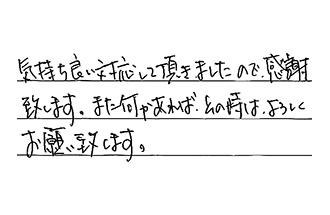 気持ち良い対応して頂きましたので、感謝
致します。また何かあれば、その時は、よろしく
お願い致します。